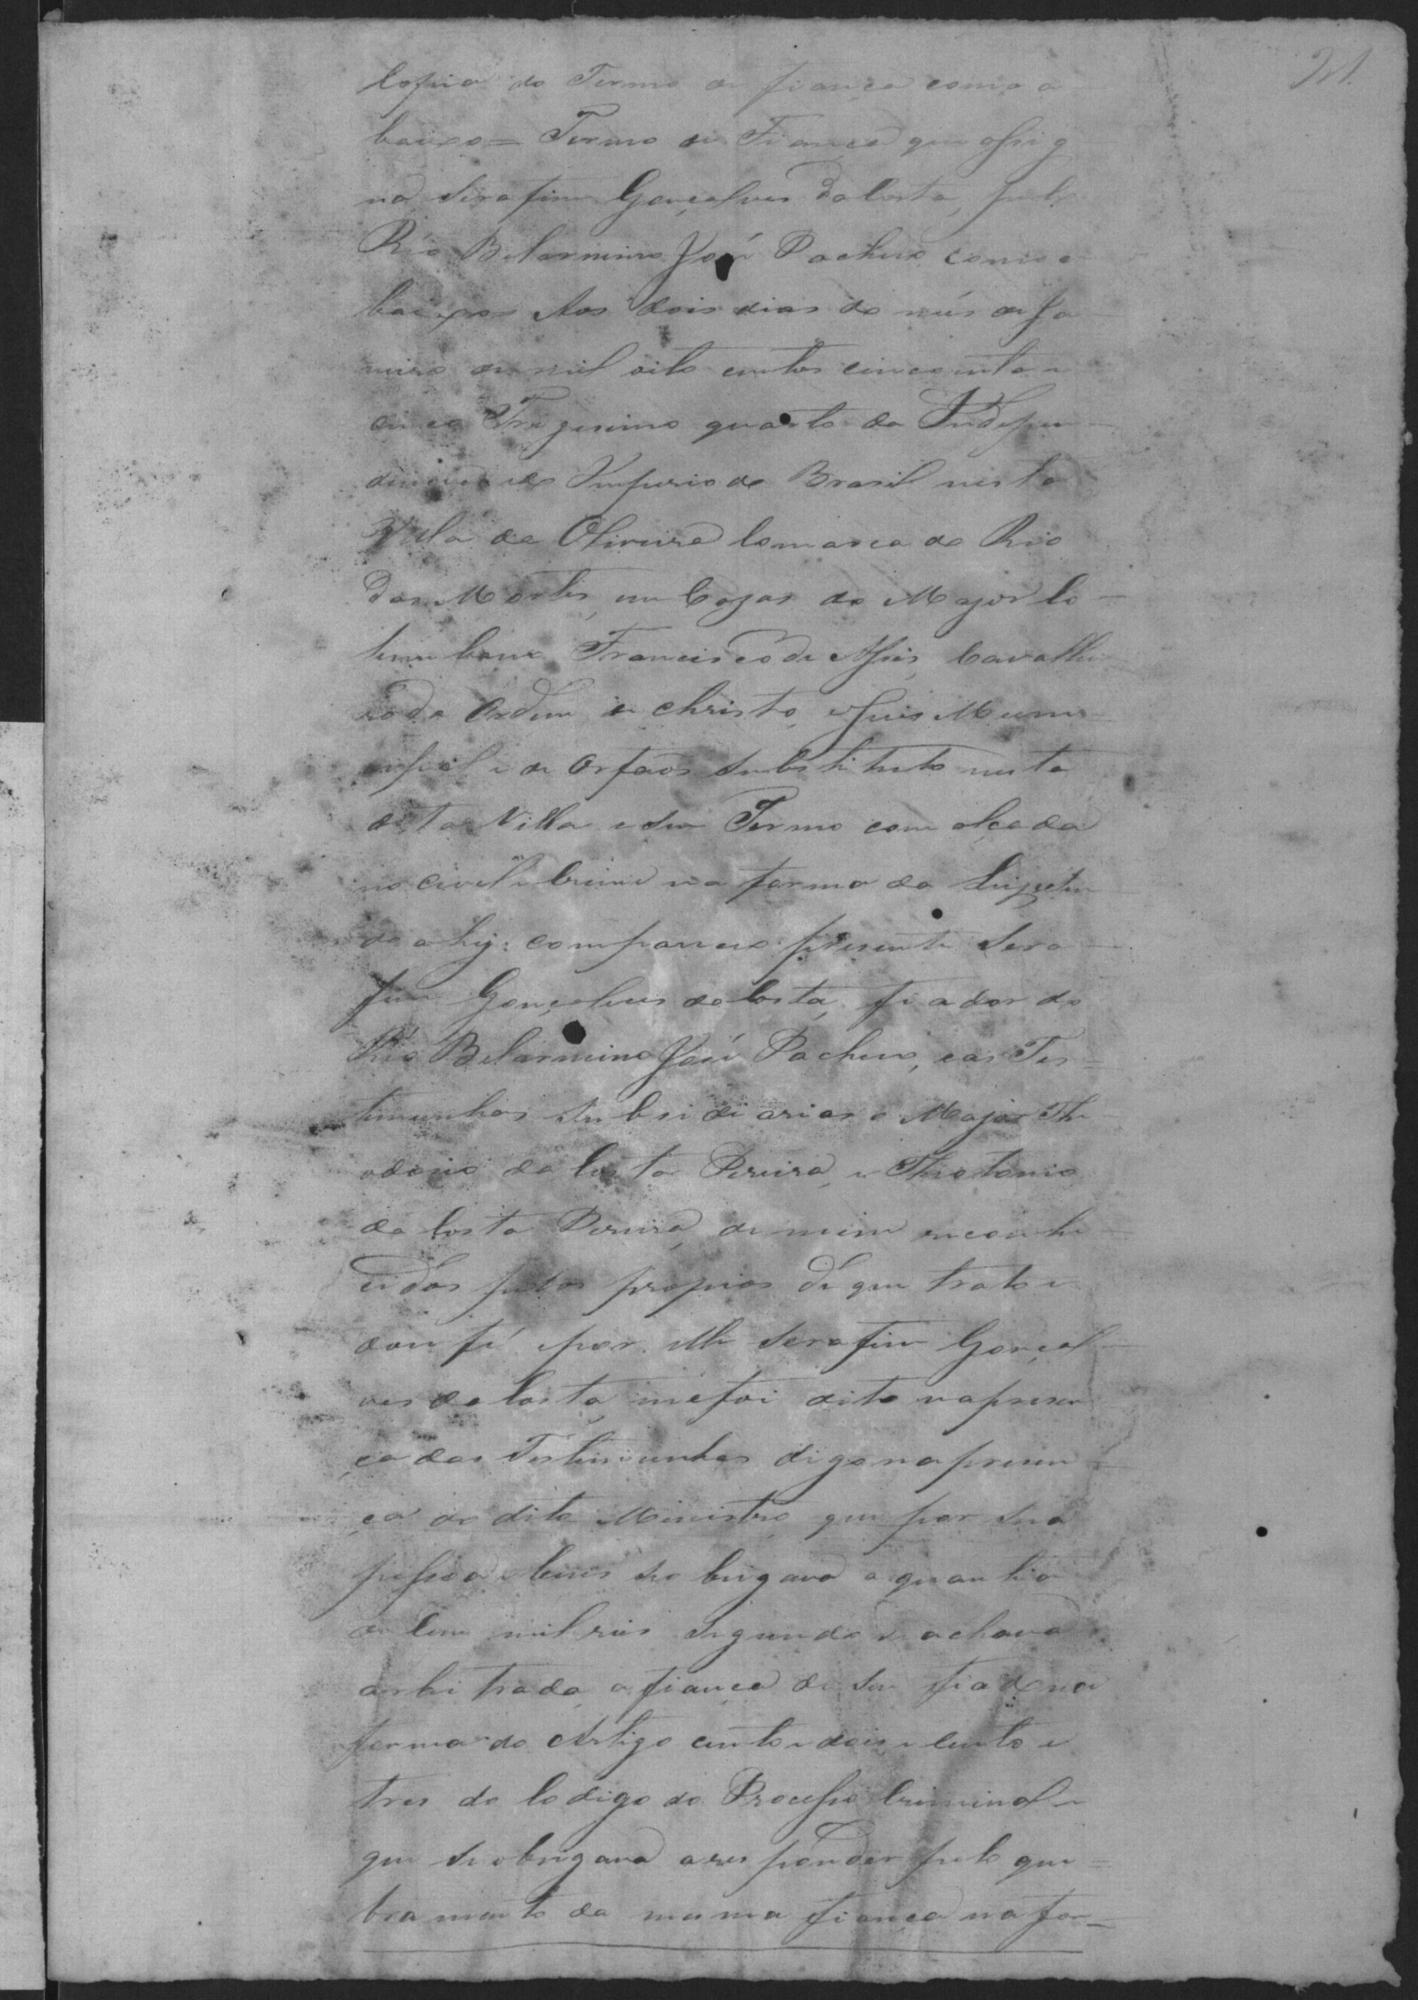 21.
Copia do Termo de fiança como a
baixo = Termo de Fiança que assig
na Serafim Gonçalves da Costa, pelo
Réo Belarmino José Pacheco como a
baixo = Aos dois dias do mês de Ja
neiro de mil oito centos cincoenta e
cinco Trigesimo quarto da Indepen
dencia e do Imperio do Brasil nesta
Villa de Oliveira Comarca do Rio
das Mortes, em Cazas do Major
Francisco de Assis, Cavallei
ro da Ordem de Christo, e Juis Muni
cipal e de Orfaos Substituto nesta
dita Villa e seu Termo com alçada
no civel e Crime na forma da
da Ley: compareceo presente Sera
fim Gonçalves da Costa, fiador do
Réo Belarmino José Pacheco, e as Tes=
temunhas Subsidiarias o Major Th
da Costa Pereira, e Theotonio
da Costa Pereira, de mim reconhe
cidos pelos propios de que trato e
dou fé e por elle Serafim Gonçal
ves da Costa, me foi dito na presen
ça das Testemunhas digo na presen
ça do dito Ministro, que por sua
pessoa e bens se obrigava a quantia
de Cem mil reis segundo se achava
arbitrada a fiança de seu fiado na
forma do Artigo cento e dois e cento e
tres do Codigo do Processo Criminal e
que se obrigava a responder pelo que=
bramento da mesma fiança na for=